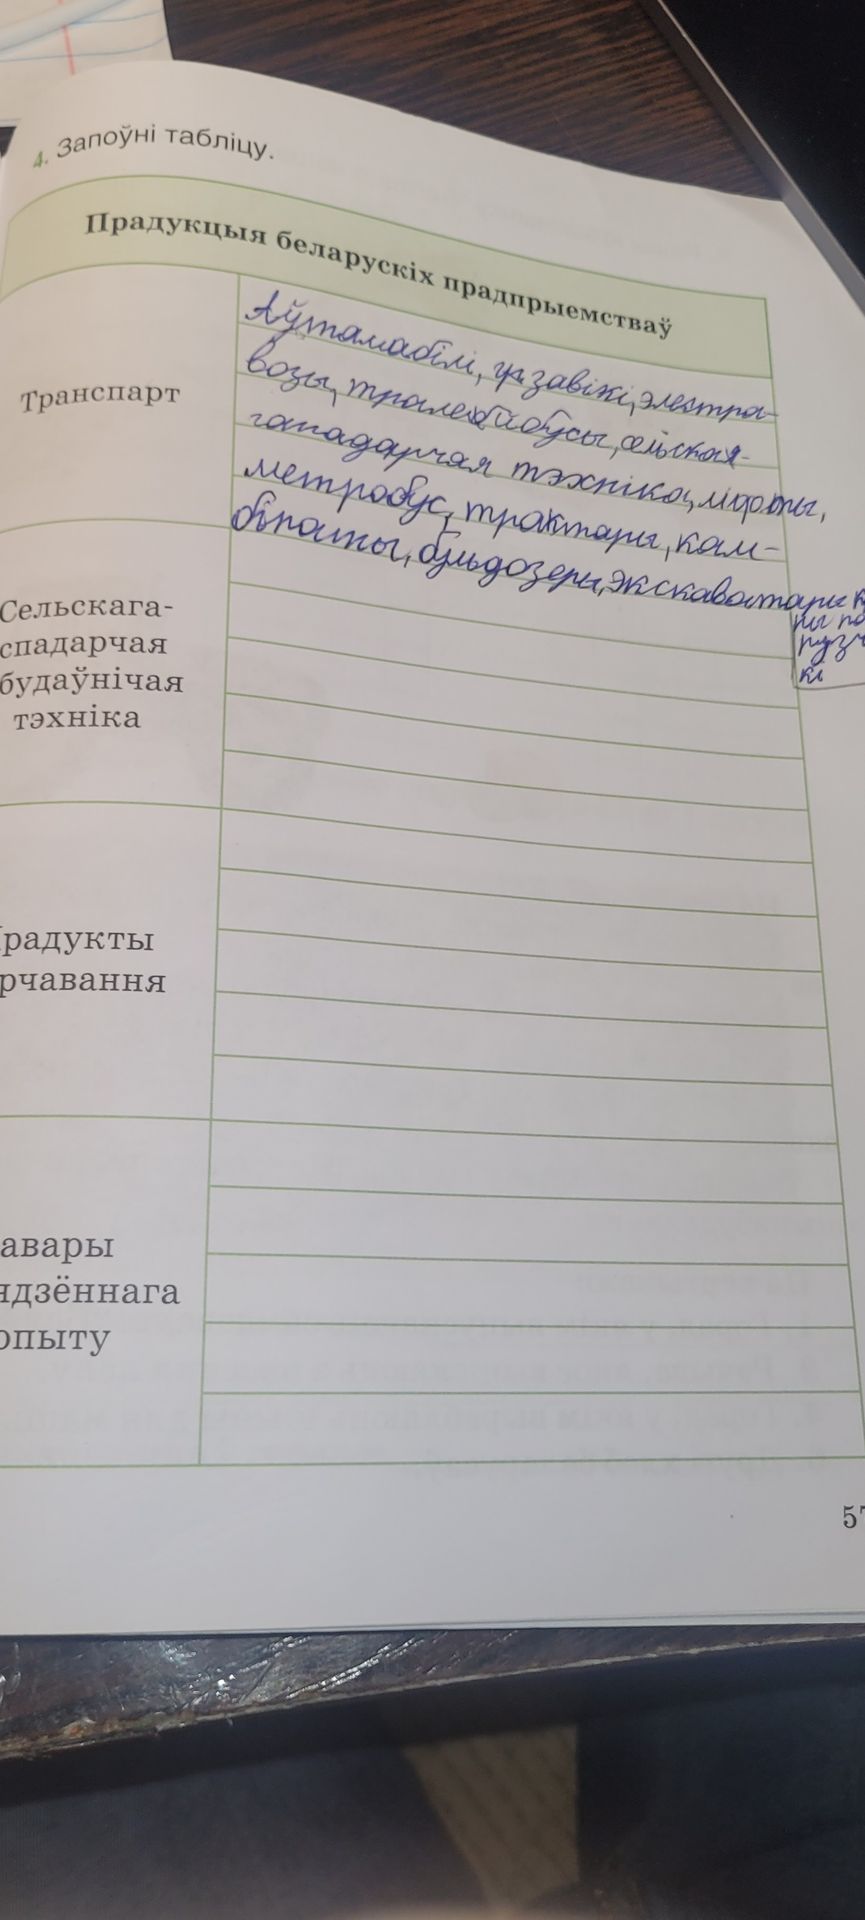 4. Запоўні табліцу.
Прадукцыя беларускіх прадпрыемстваў
Транспарт
Аўтамабілі, грузавікі, электра-
возы, тралейбусы, сельска-
гападарчая тэхніка, ліфты,
метробус, трактары, кам-
бінаты, бульдозеры, экскаватары
кі
Сельскага-
спадарчая
будаўнічая
тэхніка
радукты
рчавання
авары
ядзённага
опыту
57